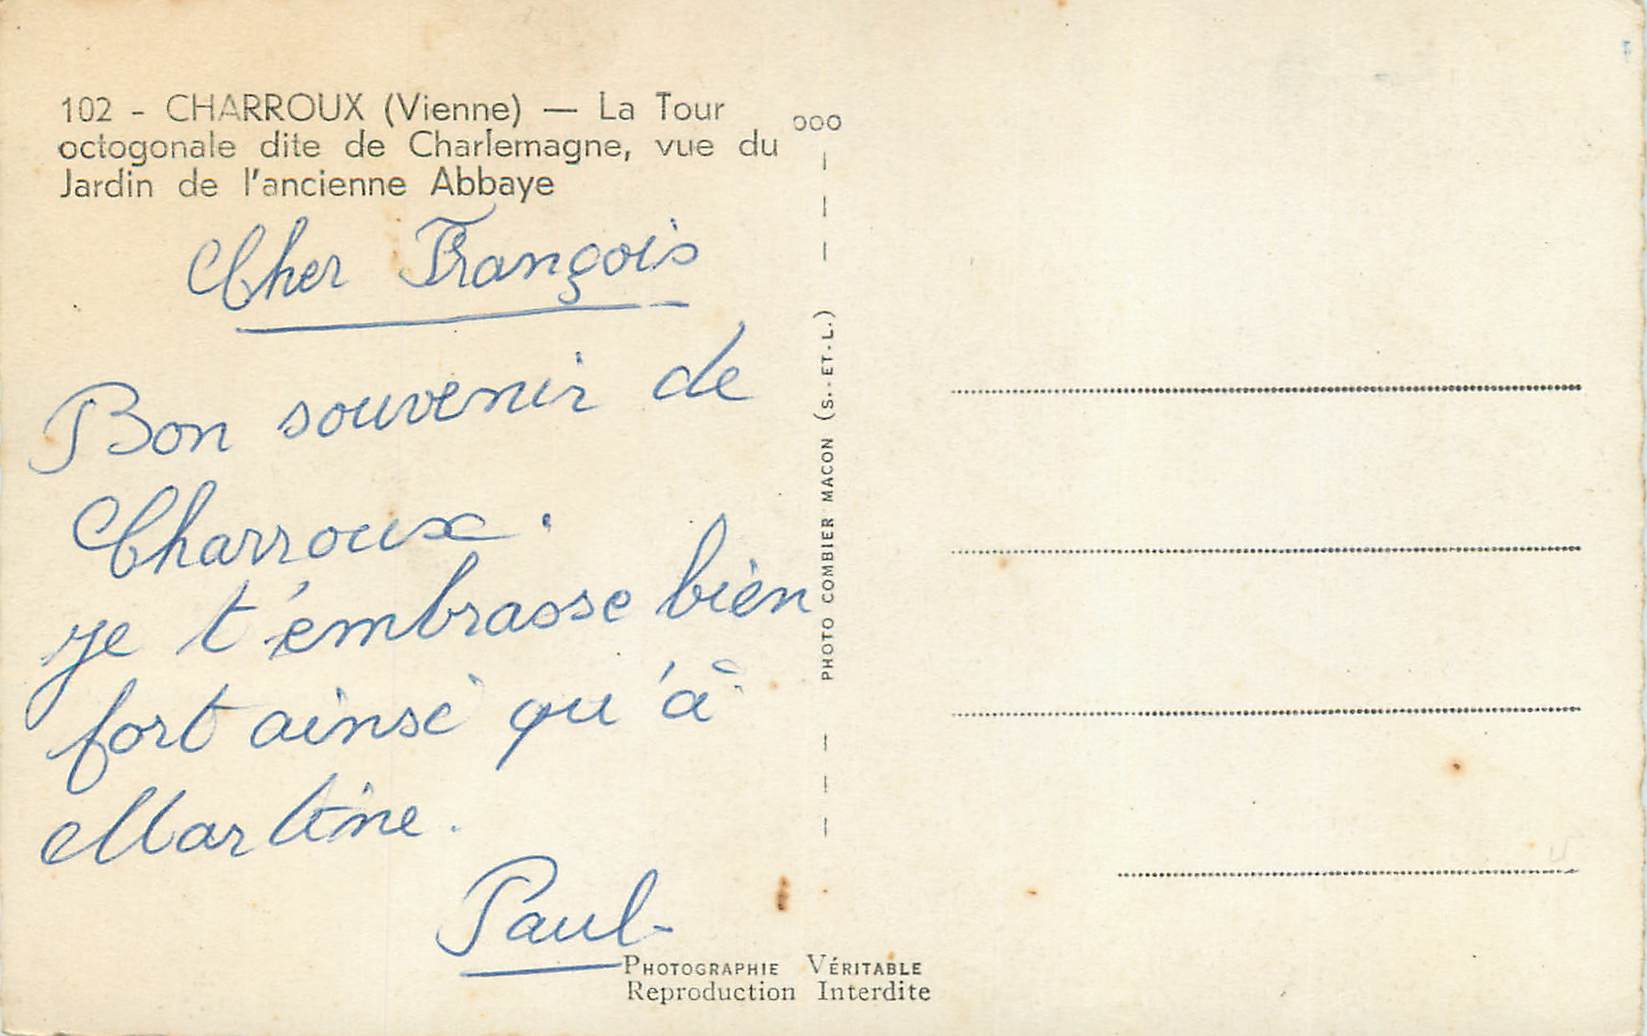 102 - CHARROUX (Vienne) — La Tour
octogonale dite de Charlemagne, vue du
Jardin de l'ancienne Abbaye
Cher François
Bon souvenir de
Charroux.
je t'embrasse bien
fort ainsi qu'à
Martine.
Paul
ooo
PHOTO COMBIER MACON (S.-ET-L.)
PHOTOGRAPHIE VÉRITABLE
Reproduction Interdite